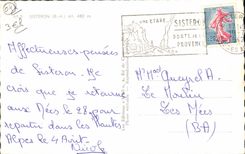 SISTERON (B.-A.) alt. 482 m
Affectueuses pensées
de Sisteron. Je
crois que je retourne
aux Mées le 28 pour
repartir dans les Hautes
Alpes le 4 Août
Nicole
ETAPE
SISTERON
PORTE DE
PROVENCE
Mr Mme Queyrel A
Le Moulin
Les Mées
(BA)